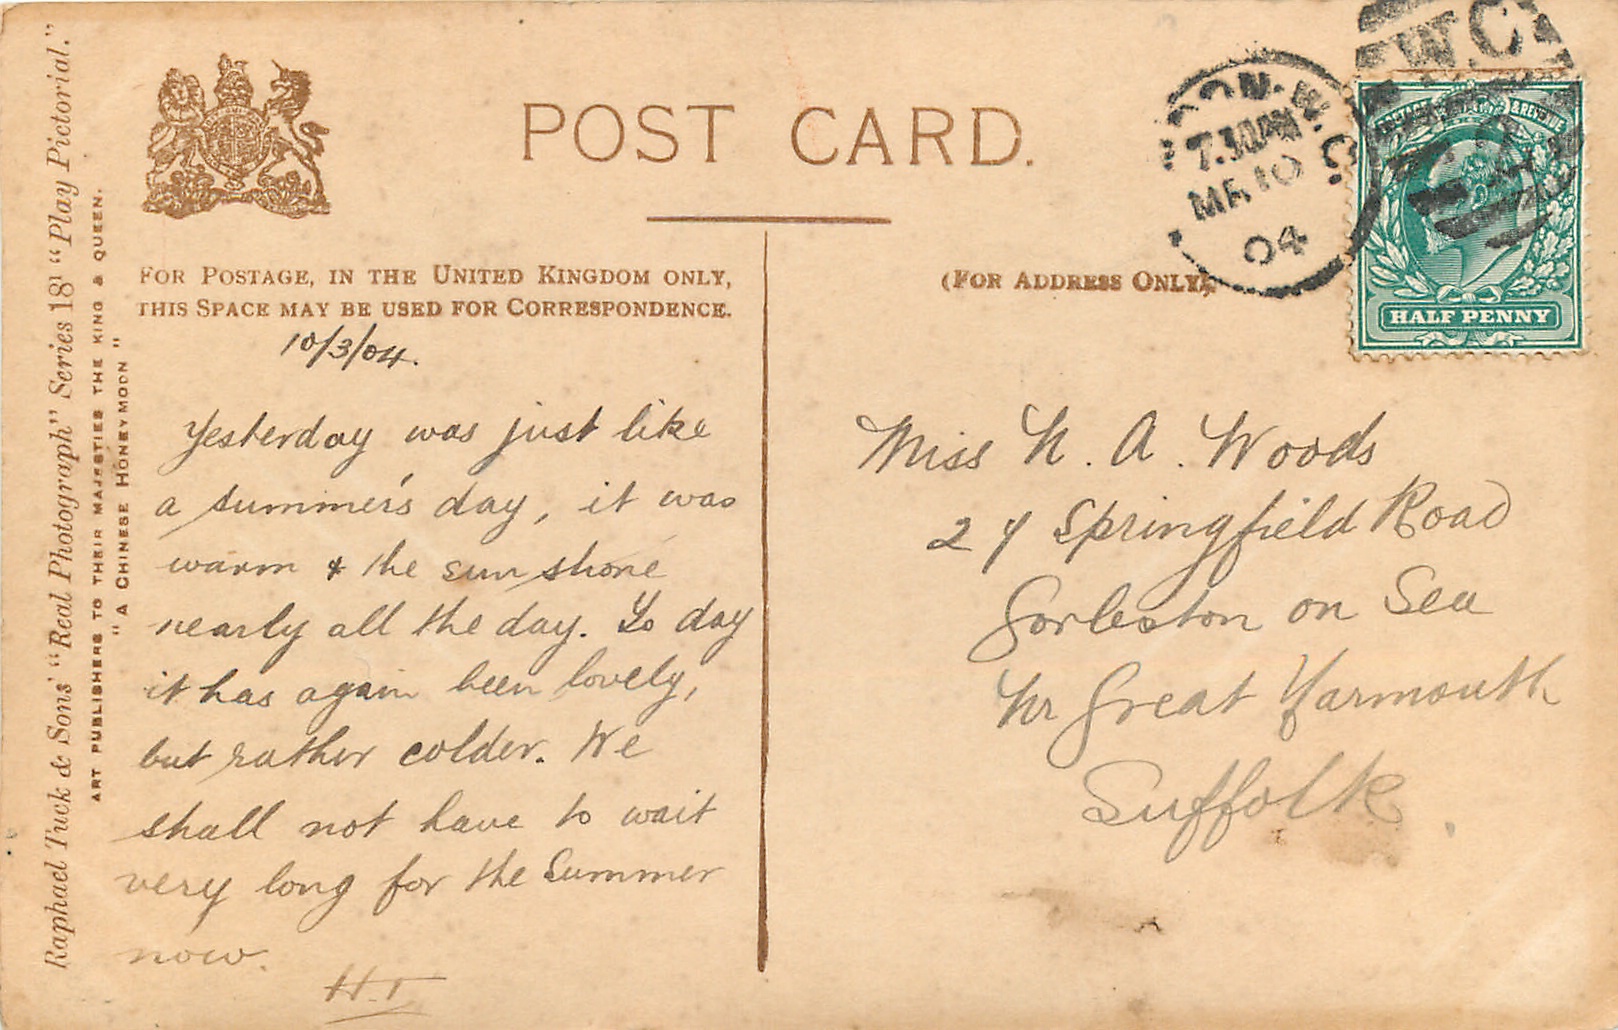 Raphael Tuck & Sons' "Real Photograph" Series 181 "Play Pictorial."
ART PUBLISHERS TO THEIR MAJESTIES THE KING & QUEEN.
"A CHINESE HONEYMOON"
POST CARD.
FOR POSTAGE, IN THE UNITED KINGDOM ONLY,
THIS SPACE MAY BE USED FOR CORRESPONDENCE.
10/3/04.
Yesterday was just like
a summer's day, it was
warm & the sun shone
nearly all the day. To day
it has again been lovely,
but rather colder. We
shall not have to wait
very long for the Summer
now.
(FOR ADDRESS ONLY).
Miss N. A. Woods
Springfield Road
Gorleston on Sea
Nr Great Yarmouth
Suffolk.
DON. W.C.
7.30PM
MR 10
04
W.C
POSTAGE & REVENUE
HALF PENNY